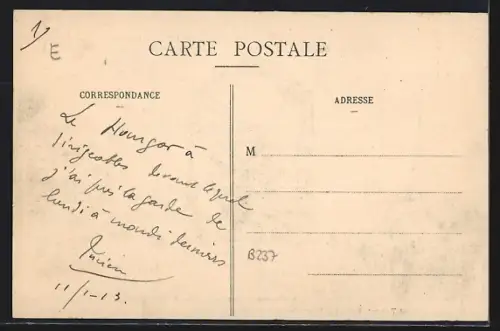 19
E
CARTE POSTALE
CORRESPONDANCE
Le Hangar à
dirigeables devant lequel
j'ai pris la garde de
lundi à mardi derniers
Lucien
11/1-13.
ADRESSE
M
B237